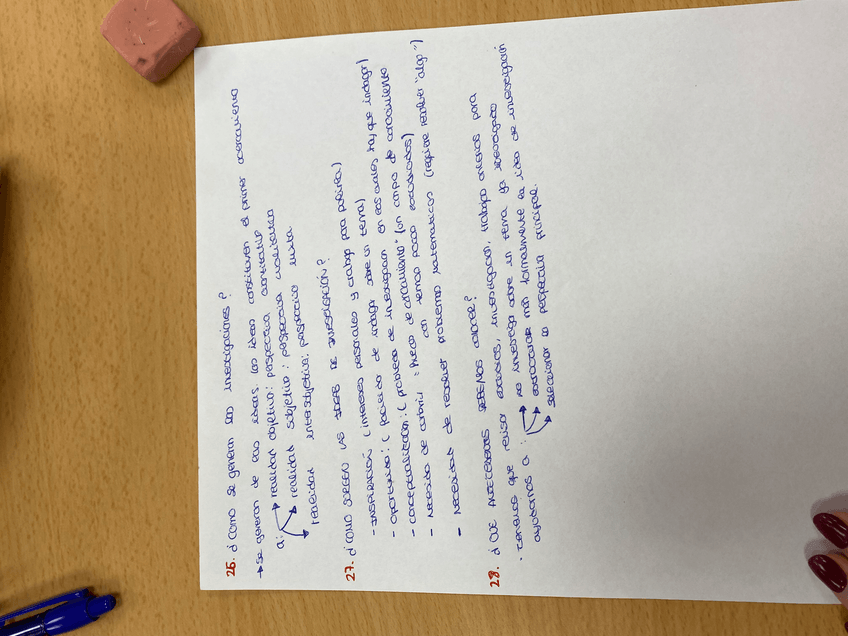 25. ¿Como se generan las investigaciones?
→ se generan de las ideas. las ideas constituyen el primer acercamiento
a: realidad objetiva: perspectiva cuantitativa
realidad subjetiva: perspectiva cualitativa
realidad intersubjetiva: perspectiva mixta
27. ¿COMO SURGEN LAS IDEAS DE INVESTIGACIÓN?
- INSPIRACIÓN (intereses personales y trabajo para
- Oportunidad: ( de indagar sobre un tema)
- Conceptualización: (problemas de investigacion en los cuales hay que indagar)
- Necesidad de cubrir "huecos de conocimiento" (un campo de conocimiento
con temas pocos estudiados)
- Necesidad de resolver problemas matematicos (requiere resolver "algo")
28. ¿QUE ANTECEDENTES DEBEMOS CONOCER?
· Tenemos que revisar estudios, investigacion, trabajo anteriores para
ayudarnos a: no investigar sobre un tema ya investigado
estructurar más formalmente la idea de investigación
seleccionar la perspectiva principal.